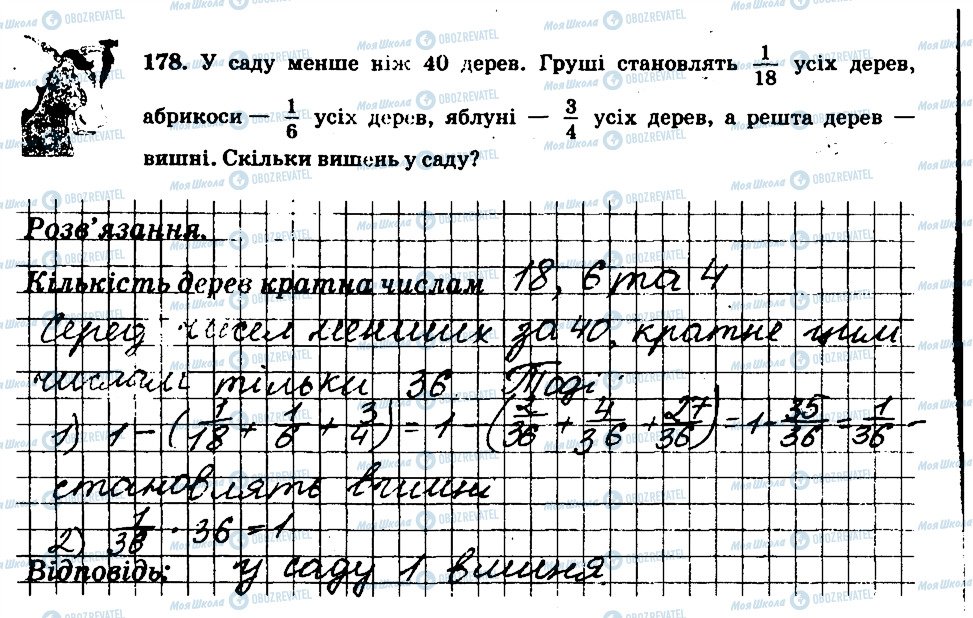 178. У саду менше ніж 40 дерев. Груші становлять 1/18 усіх дерев,
абрикоси — 1/6 усіх дерев, яблуні — 3/4 усіх дерев, а решта дерев —
вишні. Скільки вишень у саду?
Розв'язання.
Кількість дерев кратна числам 18, 6 та 4
Серед чисел менших за 40, кратне цим
числам тільки 36 Тоді:
1) 1 - (1/18 + 1/6 + 3/4) = 1 - (2/36 + 4/36 + 27/36) = 1 - 35/36 = 1/36 -
становлять вишні
2) 1/36 · 36 = 1
Відповідь: у саду 1 вишня.
Моя Школа OBOZREVATEL